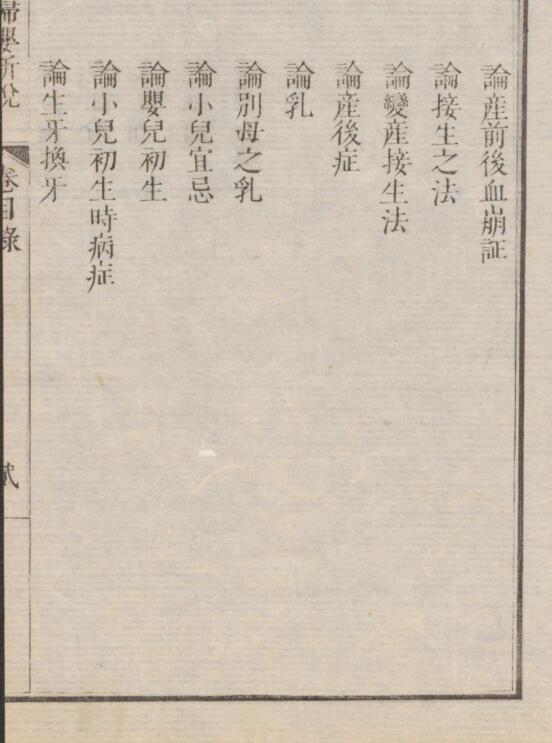 論産前後血崩証
論接生之法
論變産接生法
論産後症
論乳
論別母之乳
論小兒宜忌
論嬰兒初生
論小兒初生時病症
論生牙換牙
婦嬰新說
卷目錄
貳